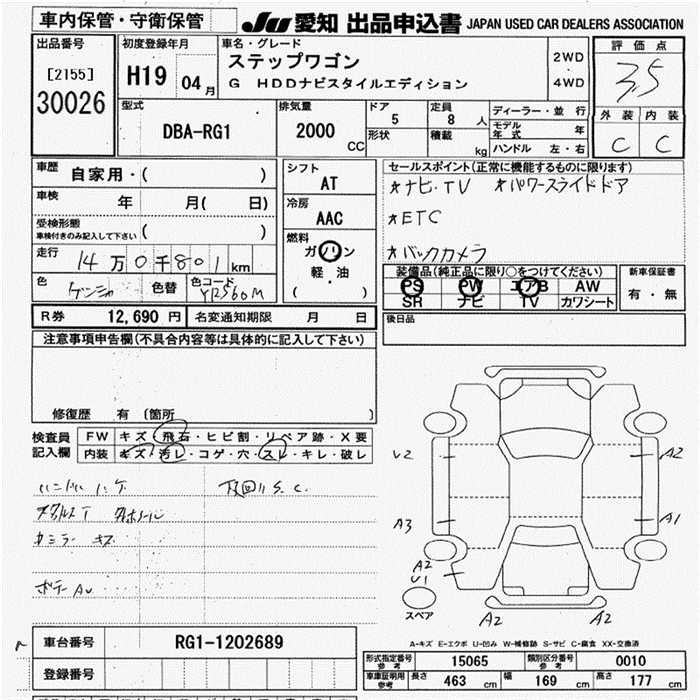 車内保管・守衛保管
JU 愛知 出品申込書 JAPAN USED CAR DEALERS ASSOCIATION
出品番号
[2155]
30026
初度登録年月
H19 04月
車名・グレード
ステップワゴン
G HDDナビスタイルエディション
2WD
・
4WD
評価点
3.5
外装 内装
C C
型式
DBA-RG1
排気量
2000 CC
ドア
5
定員
8 人
形状
積載 kg
ディーラー・並行
モデル年式 年
ハンドル 左・右
車歴
自家用・( )
車検
年 月( 日)
受検形態
車検付きのみ記入して下さい ( )
走行
14万0千801km
色
色替
色コード
YR560M
シフト
AT
冷房
AAC
燃料
ガソリン
軽・油
( )
セールスポイント(正常に機能するものに限ります)
★ナビ・TV ★パワースライドドア
★ETC
★バックカメラ
装備品(純正品に限り○をつけてください)
PS PW エアB AW
SR ナビ TV カワシート
新車保証書
有・無
後日品
R券 12,690 円 名変通知期限 月 日
注意事項申告欄(不具合内容等は具体的に記入して下さい)
修復歴 有 〔箇所 〕
検査員記入欄
FW キズ・飛石・ヒビ割・リペア跡・X要
内装 キズ・汚レ・コゲ・穴・スレ・キレ・破レ
ハンドルハゲ
S.C.
カミラー キズ
ボデー AU
U2
A2
A3
A1
A2
U1
スペア
A2
A2
A-キズ E-エクボ U-凹み W-補修跡 S-サビ C-腐食 XX-交換済
車台番号 RG1-1202689
登録番号
形式指定番号参考 15065 類別区分番号参考 0010
車庫証明用参考 長さ 463 cm 幅 169 cm 高さ 177 cm